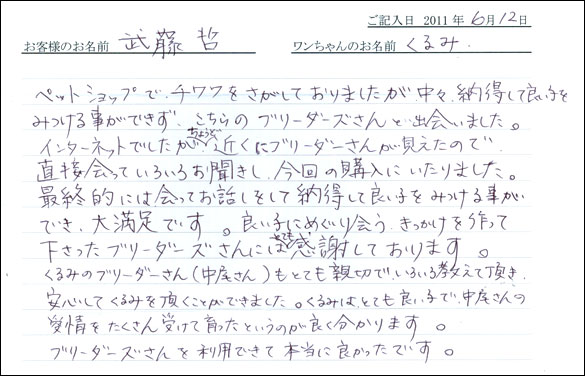 ご記入日 2011年 6月12日
お客様のお名前 武藤 哲 ワンちゃんのお名前 くるみ.
ペットショップで、チワワをさがしておりましたが中々、納得して良い子を
みつける事ができず、こちらのブリーダーズさんと出会いました。
インターネットでしたがちょうど近くにブリーダーさんが見えたので
直接会っていろいろお聞きし、今回の購入にいたりました。
最終的には会ってお話しをして納得して良い子をみつける事が
でき、大満足です。良い子にめぐり会う、きっかけを作って
下さったブリーダーズさんには感謝しております。
くるみのブリーダーさん(中尾さん)もとても親切で、いろいろ教えて頂き、
安心してくるみを頂くことができました。くるみは、とても良い子で、中尾さんの
愛情をたくさん受けて育ったというのが良く分かります。
ブリーダーズさんを利用できて本当に良かったです。